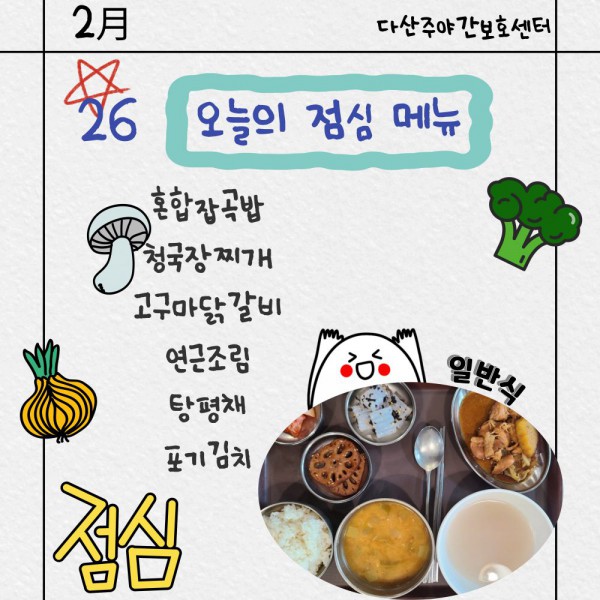 2月
다산주야간보호센터
26
오늘의 점심 메뉴
혼합잡곡밥
청국장찌개
고구마닭갈비
연근조림
탕평채
포기김치
일반식
점심